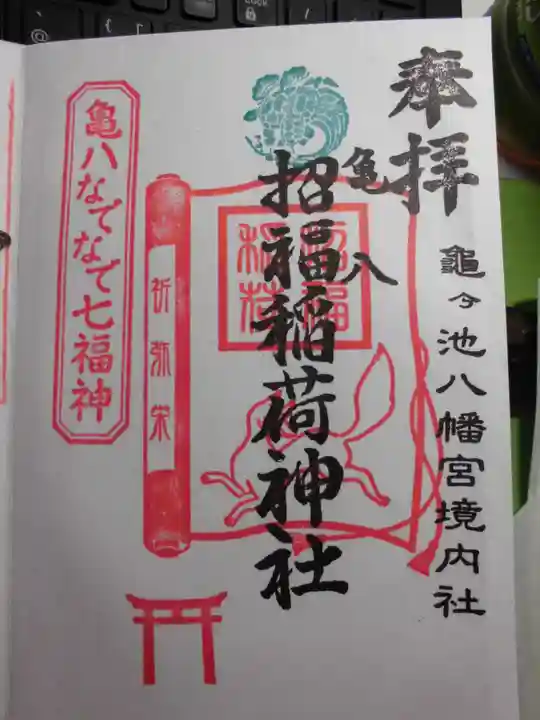 奉拝
龜ヶ池八幡宮境内社
亀八
招福稲荷神社
招福
稲荷
祈弥栄
亀八なでなで七福神